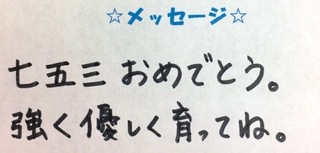 ☆メッセージ☆
七五三 おめでとう。
強く優しく育ってね。